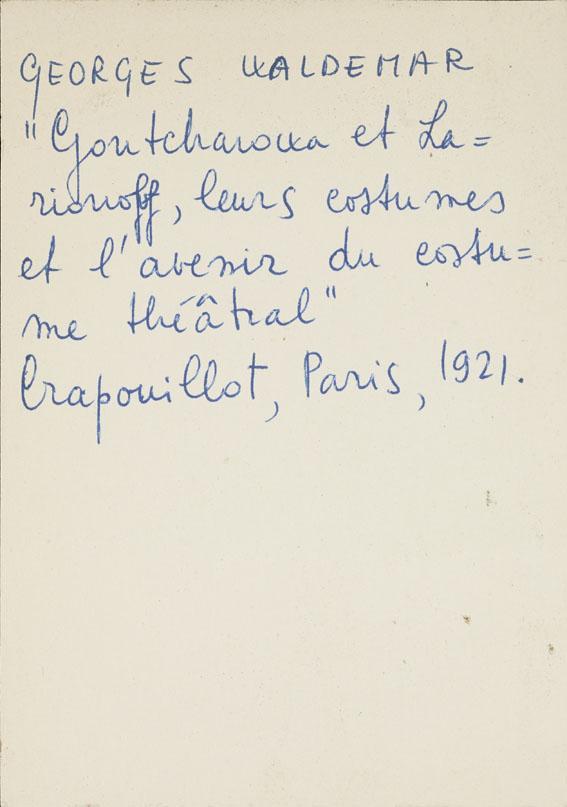 GEORGES WALDEMAR
"Gontcharowa et La=
rionoff, leurs costumes
et l'avenir du costu=
me théâtral"
Crapouillot, Paris, 1921.